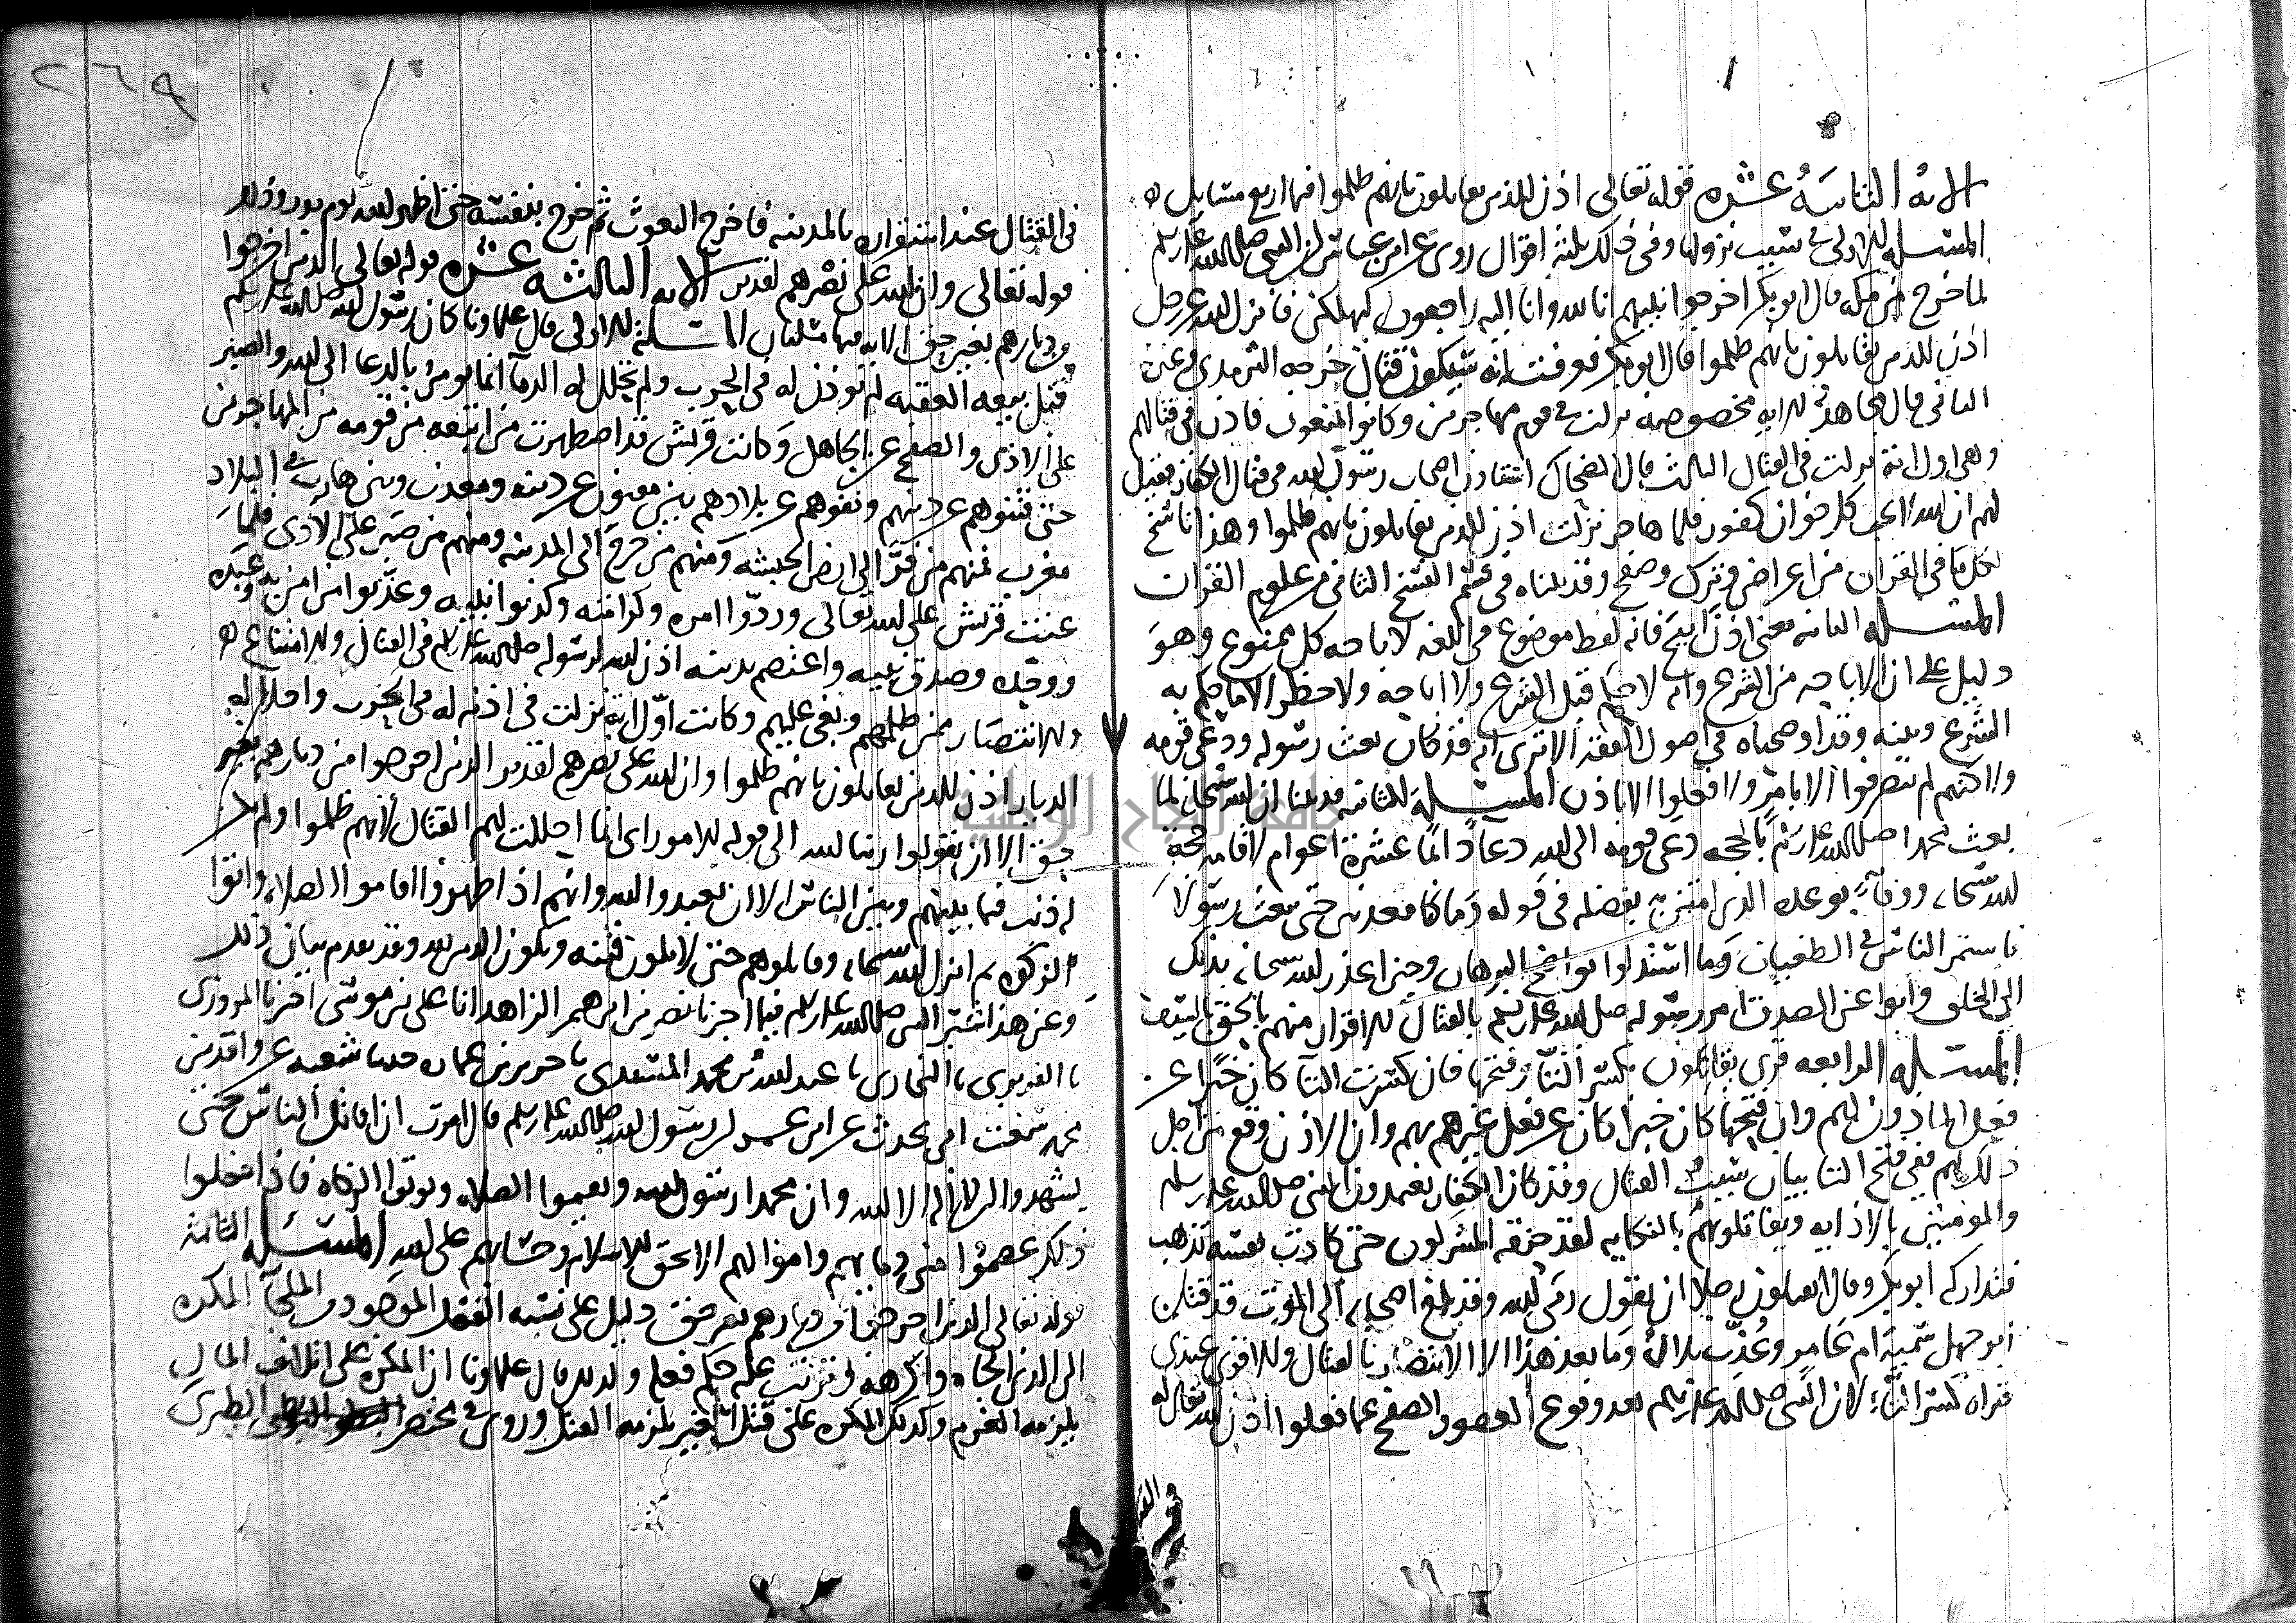 الآية الثانية عشرة قوله تعالى اذن للذين يقاتلون بانهم ظلموا فيها اربع مسايل
المسئلة الاولى في سبب نزولها وفي ذلك ثلثة اقوال روي عن ابن عباس ان النبي صلى الله عليه وسلم
لما خرج من مكة قال ابو بكر اخرجوا نبيهم انا لله وانا اليه راجعون ليهلكن فانزل الله عز وجل
اذن للذين يقاتلون بانهم ظلموا قال ابو بكر فعرفت انه سيكون قتال خرجه الترمذي وغيره
الثاني قال مجاهد الاية مخصوصة نزلت في قوم مهاجرين وكانوا يمنعون فاذن في قتالهم
وهي اول اية نزلت في القتال الثالث قال الضحاك استاذن اصحاب رسول الله في قتال الكفار فقيل
لهم ان الله لا يحب كل خوان كفور فلما هاجر نزلت اذن للذين يقاتلون بانهم ظلموا وهذا ناسخ
لكل ما في القران من اعراض وترك وصفح وقد بيناه في قسم النسخ الثاني من علوم القران
المسئلة الثانية معنى اذن ابيح فانه لفظ موضوع في اللغة لاباحة كل ممنوع وهو
دليل على ان الاباحة من الشرع وانه لا حكم قبل الشرع ولا اباحة ولا حظر الا ما حكم به
الشرع وبينه وقد اوضحناه في اصول الفقه الا ترى انه قد كان بعث رسوله ودعى قومه
ولاكنهم لم يتصرفوا الا بامر ولا فعلوا الا باذن المسئلة الثالثة قد بينا ان الله سبحانه لما
بعث محمدا صلى الله عليه وسلم بالحجة دعى قومه الى الله دعا دائما عشرة اعوام لاقامة حجة
الله سبحانه ووفاء بوعده الذي امتن به بفضله في قوله وما كنا معذبين حتى نبعث رسولا
فاستمر الناس في الطغيان وما استدلوا بواضح البرهان وحين اعذر الله سبحانه بذلك
الى الخلق وابوا عن الصدق امر رسوله صلى الله عليه وسلم بالقتال ... منهم بالحق بالسيف
المسئلة الرابعة قرئ يقاتلون بكسر التاء وفتحها فان كسرت التاء كان خبرا عن
فعل الماذون لهم وان فتحها كان خبرا كان عن فعل غيرهم بهم وان الاذن وقع من اجل
ذلك لهم ففي فتح التا بيان سبب القتال وقد كان الكفار يعمدون النبي صلى الله عليه وسلم
والمومنين بالاذاية ويقاتلونهم بالنكاية لقد خنقه المشركون حتى كادت نفسه تذهب
فتداركه ابو بكر وقال اتقتلون رجلا ان يقول ربي الله وقد بلغ اصحابه الى الموت قد قتل
ابو جهل سمية ام عامر وعذب بلال وما بعد هذا الا الانتصار بالقتال والاقوى عندي
قراة كسر التاء لان النبي صلى الله عليه وسلم بعد وقوع العفو والصفح عما فعلوا اذن الله تعالى له
في القتال عند استقراره بالمدينة فاخرج البعوث ثم خرج بنفسه حتى اظهره الله يوم بدر وذلك
قوله تعالى وان الله على نصرهم لقدير الاية الثالثة عشرة قوله تعالى الذين اخرجوا
من ديارهم بغير حق الاية فيها مسئلتان المسئلة الاولى قال علماونا كان رسول الله صلى الله عليه وسلم
قبل بيعة العقبة لم يوذن له في الحرب ولم تحلل له الدماء انما يومر بالدعا الى الله والصبر
على الاذى والصفح عن الجاهل وكانت قريش قد اضطهدت من اتبعه من قومه من المهاجرين
حتى فتنوهم عن دينهم ونفوهم عن بلادهم بين مفتون عن دينه ومعذب وبين هارب في البلاد
مغرب فمنهم من فر الى ارض الحبشة ومنهم من خرج الى المدينة ومنهم من صبر على الاذى فلما
عتت قريش على الله تعالى وردوا امره وكرامته وكذبوا نبيه وعذبوا من امن به وعبده
ووحده وصدق نبيه واعتصم بدينه اذن الله لرسوله صلى الله عليه وسلم في القتال والامتناع
والانتصار ممن ظلمهم وبغى عليهم وكانت اول اية نزلت في اذنه له في الحرب واحلاله
الدماء اذن للذين يقاتلون بانهم ظلموا وان الله على نصرهم لقدير الذين اخرجوا من ديارهم بغير
حق الا ان يقولوا ربنا الله الى قوله الامور اي انما احللت لهم القتال لانهم ظلموا ولم يكن
لهم ذنب فيما بينهم وبين الناس الا ان يعبدوا الله وانهم اذا ظهروا اقاموا الصلاة واتوا
الزكوة ثم انزل الله سبحانه وقاتلوهم حتى لا تكون فتنة ويكون الدين لله وقد تقدم بيان ذلك
وعن هذا اشبر النبي صلى الله عليه وسلم فيما اخبرنا نصر بن ابرهيم الزاهد انا علي بن موسى اخبرنا المروزي
نا الفربري نا البخاري نا عبد الله بن محمد المسندي نا حرمي بن عمارة حدثنا شعبة عن واقد بن
محمد سمعت ابي يحدث عن ابن عمر ان رسول الله صلى الله عليه وسلم قال امرت ان اقاتل الناس حتى
يشهدوا ان لا اله الا الله وان محمدا رسول الله ويقيموا الصلاة ويوتوا الزكاة فاذا فعلوا
ذلك عصموا مني دماهم واموالهم الا بحق الاسلام وحسابهم على الله المسئلة الثانية
قوله تعالى الذين اخرجوا من ديارهم بغير حق دليل على نسبة الفعل الموجود من الملجأ المكره
الى الذي الجاه واكرهه ويترتب عليه حكم فعله ولذلك قال علماونا ان المكره على اتلاف المال
يلزمه الغرم وكذلك المكره على قتل الغير يلزمه القتل وروي في مختصر الطبري